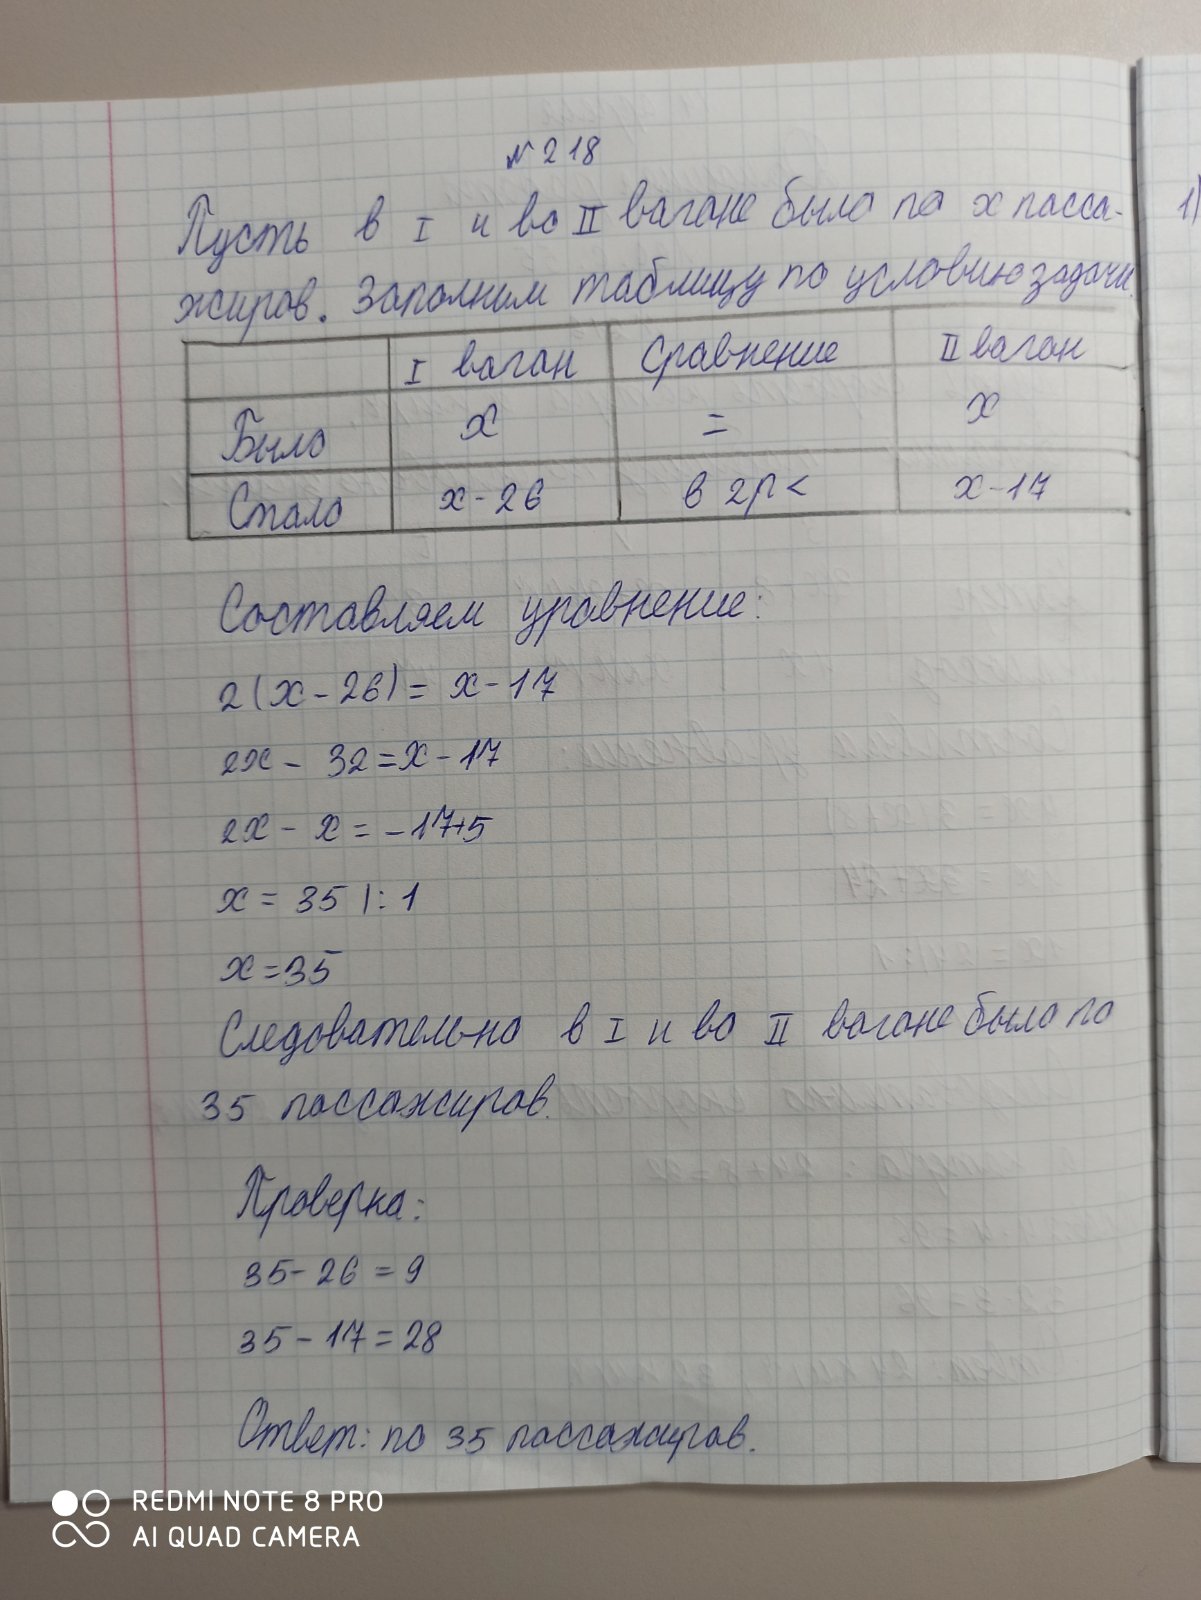 № 218
Пусть в I и во II вагоне было по x пасса-
жиров. Заполним таблицу по условию задачи.
I вагон Сравнение II вагон
Было x = x
Стало x - 26 в 2р < x - 17
Составляем уравнение:
2(x - 26) = x - 17
2x - 32 = x - 17
2x - x = -17+5
x = 35 |: 1
x = 35
Следовательно в I и во II вагоне было по
35 пассажиров.
Проверка:
35 - 26 = 9
35 - 17 = 28
Ответ: по 35 пассажиров.
1)
REDMI NOTE 8 PRO
AI QUAD CAMERA